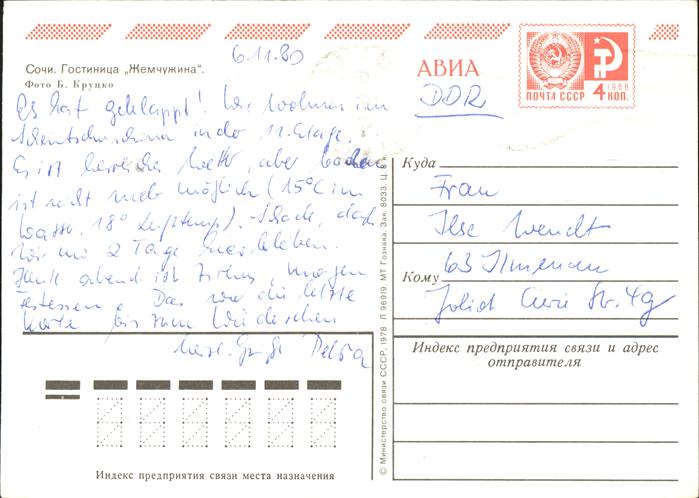 Сочи. Гостиница „Жемчужина“.
Фото Б. Круцко
6.11.80
АВИА
DDR
ПОЧТА СССР
1966
4 КОП.
Es hat geklappt! Wir wohnen im
in der 11. Etage.
Es ist herrliches Wetter, aber baden
ist nicht mehr möglich (15°C im
Wasser, 18° Lufttemp.). Schade, daß
wir nur 2 Tage hierbleiben.
Heute abend ist Zirkus, morgen
Festessen. Das war die letzte
Karte bis zum Wiedersehen
Herzl. Gr.
Куда
Frau
Ilse Wendt
63 Ilmenau
Кому
Joliot Curie Str. 4g
Индекс предприятия связи и адрес
отправителя
Индекс предприятия связи места назначения
© Министерство связи СССР, 1978. Л. 96919. МТ Гознака. Зак. 8033. Ц. 8 к.